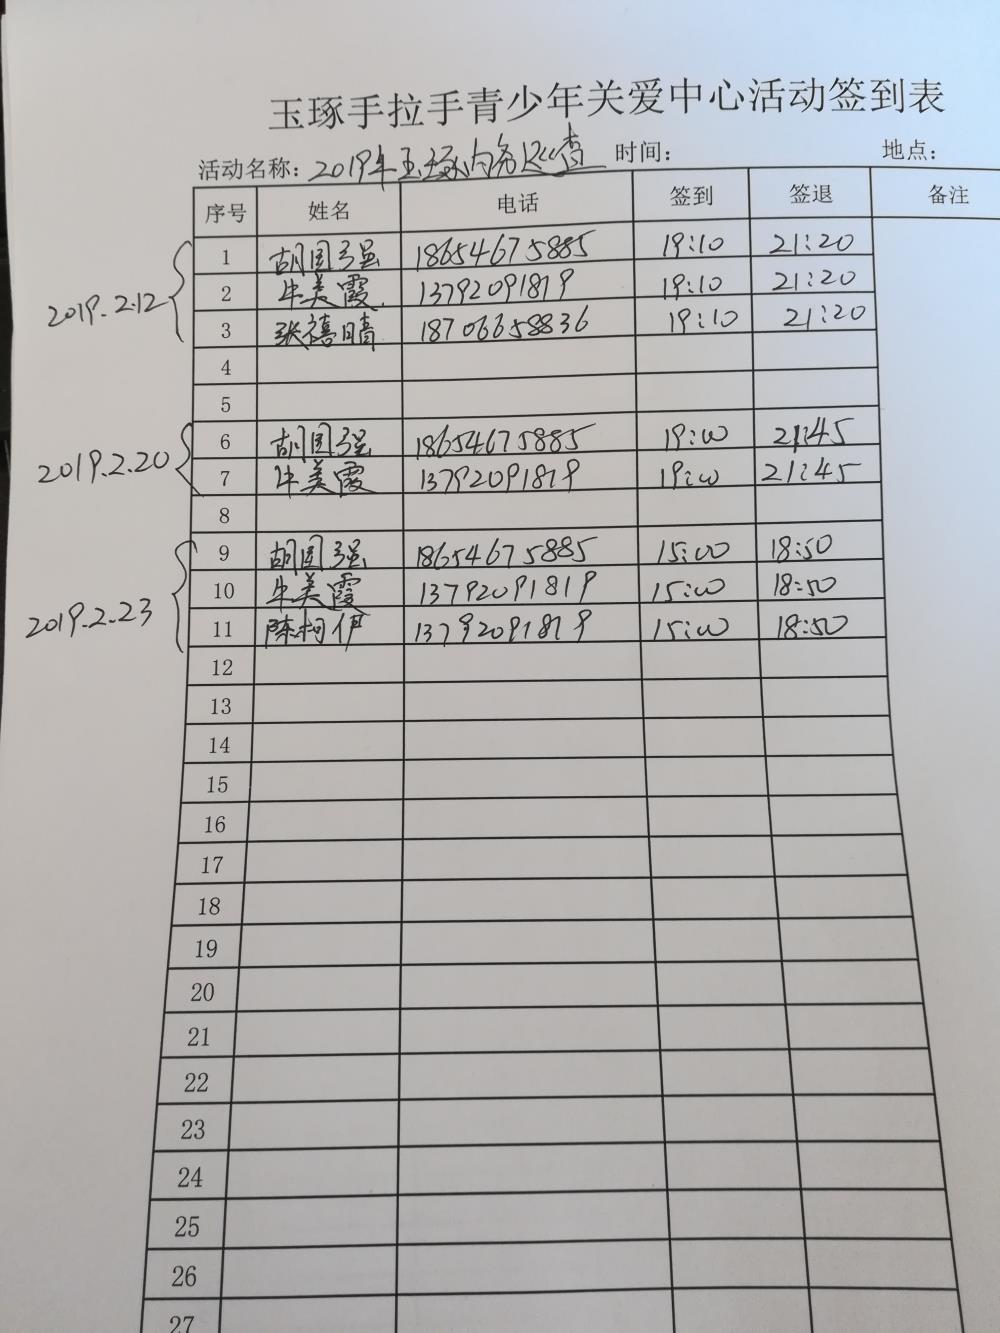 玉琢手拉手青少年关爱中心活动签到表
活动名称：2019年玉琢内务巡查 时间： 地点：
序号 姓名 电话 签到 签退 备注
2019.2.12
1 胡国强 18654675885 19:10 21:20
2 牛美霞 13792091819 19:10 21:20
3 张禧晴 18706658836 19:10 21:20
4
5
2019.2.20
6 胡国强 18654675885 19:00 21:45
7 牛美霞 13792091819 19:00 21:45
8
2019.2.23
9 胡国强 18654675885 15:00 18:50
10 牛美霞 13792091819 15:00 18:50
11 陈柯伊 13792091819 15:00 18:50
12
13
14
15
16
17
18
19
20
21
22
23
24
25
26
27